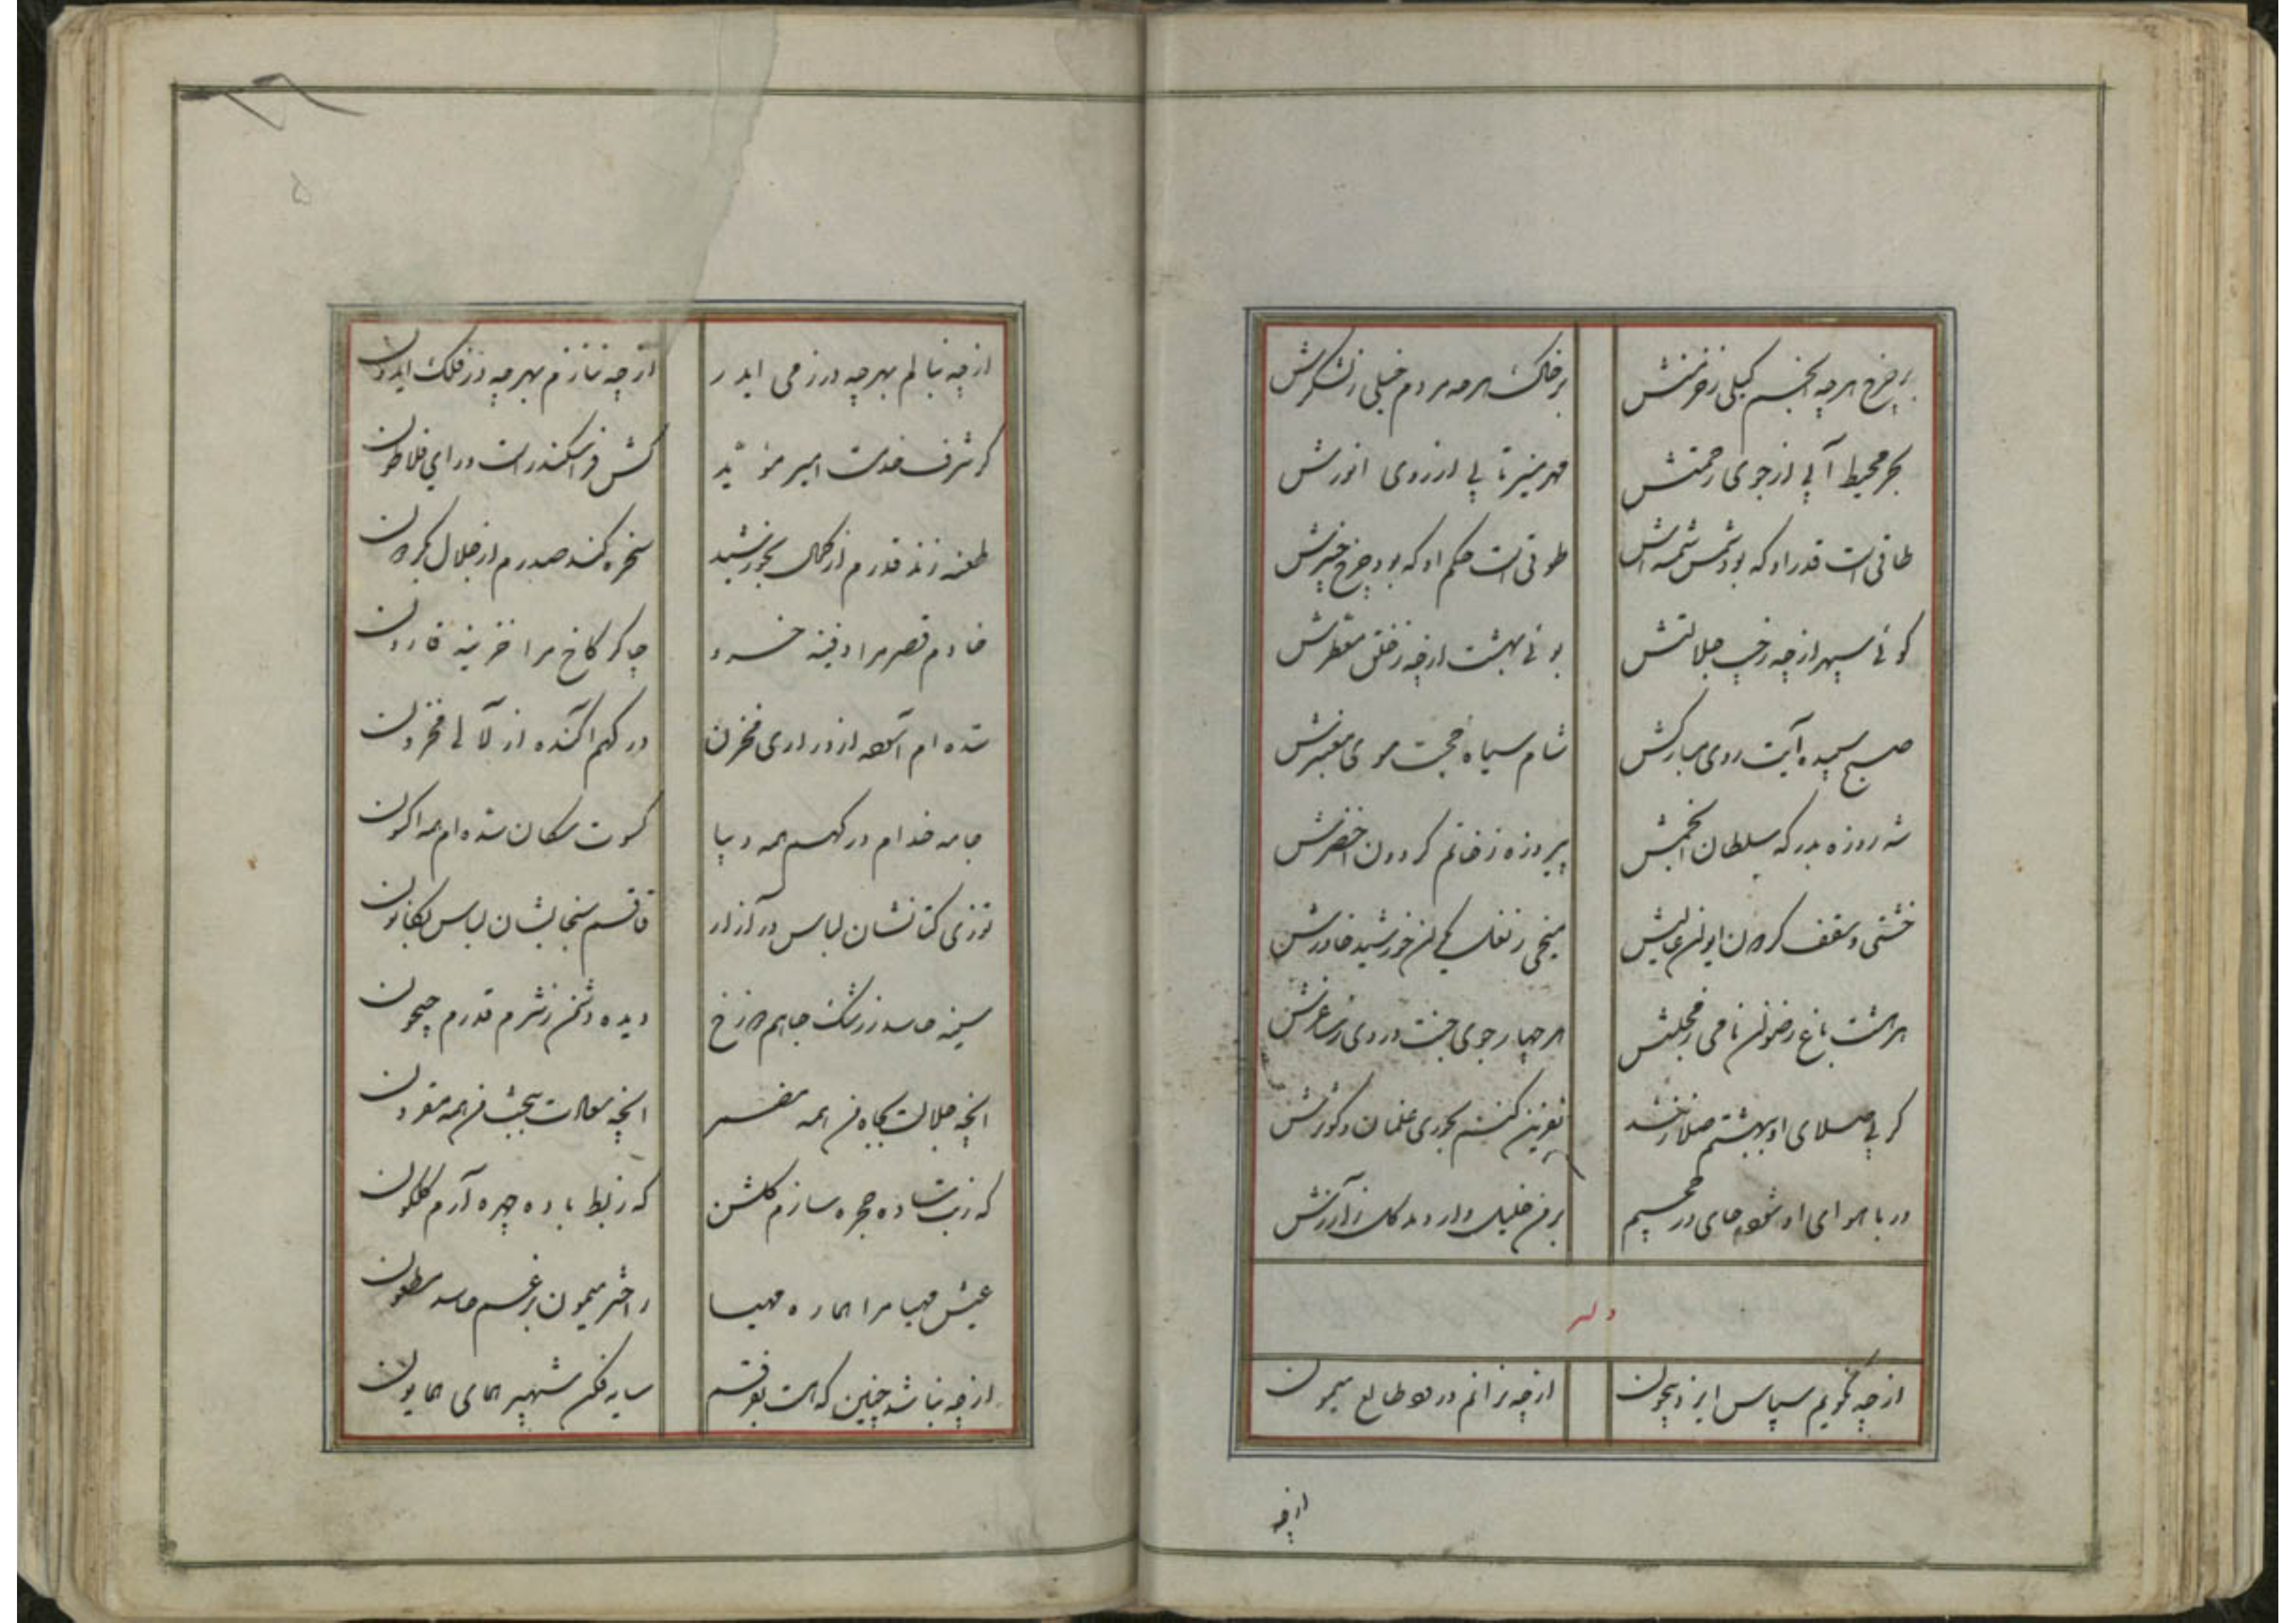 بر چرخ هرچه انجم کیلی ز خرمنش
بر خاک هرچه مردم خیلی ز لشکرش
بحر محیط آبی از جوی رحمتش
مهر منیر تابی از روی انورش
طاقی است قدر او که بود شمس شمسه‌اش
طوقی است حکم او که بود چرخ چنبرش
کوئی سپهر از چه ز جلالتش
بوئی بهشت از چه ز خلق معطرش
صبح سپیده آیت روی مبارکش
شام سیاه حجت موی معنبرش
شه روزه بدرکه سلطان انجمش
پیروزه ز خاتم کردون اخضرش
خشتی و سقف کردون ایوان عالیش
میخی ز نعل یکران خورشید خاورش
هر هشت باغ رضوان نامی ز مجلسش
هر چهار جوی جنت دردی ز ساغرش
کر بی صلای او ببهشتم صلا زنند
تعویذ کنند بحوری غلمان و کوثرش
ور با هوای او شود جای در جحیم
بر من خلیل وار دمد کل ز آذرش
وله
از چه نکویم سپاس ایزد بیچون
از چه نرانم درود طالع میمون
از چه
از چه ننالم بهر چه در زمی ایدر
از چه ننازم بهر چه در فلک ایدون
کز شرف خدمت امیر مؤید
کش فر اسکندر است و رای فلاطون
طعنه زند قدرم از کمال بخورشید
سخره کند صدرم از جلال بکردون
خادم قصر مرا دفینه خسرو
چاکر کاخ مرا خزینه قارون
شده‌ام آسوده از دراری مخزن
در کهم آکنده از لآلی مخزون
جامه خدام درکهم همه دیبا
کسوت سکان سده‌ام همه اکسون
توزی کتانشان لباس در آزار
قاقم سنجابشان لباس بکانون
سینه حاسد ز رشک جاهم دوزخ
دیده دشمن ز شرم قدرم جیحون
آنچه جلالت بجاه من همه مضمر
آنچه سعادت ببخت من همه مقرون
که ز بت ساده حجره سازم کلشن
که ز بط باده چهره آرم کلکون
عیش مهیا مرا هماره مهیا
ز اختر میمون برغم حاسد مطعون
از چه نباشد چنین که هست بفرقم
سایه فکن شهپر همای همایون